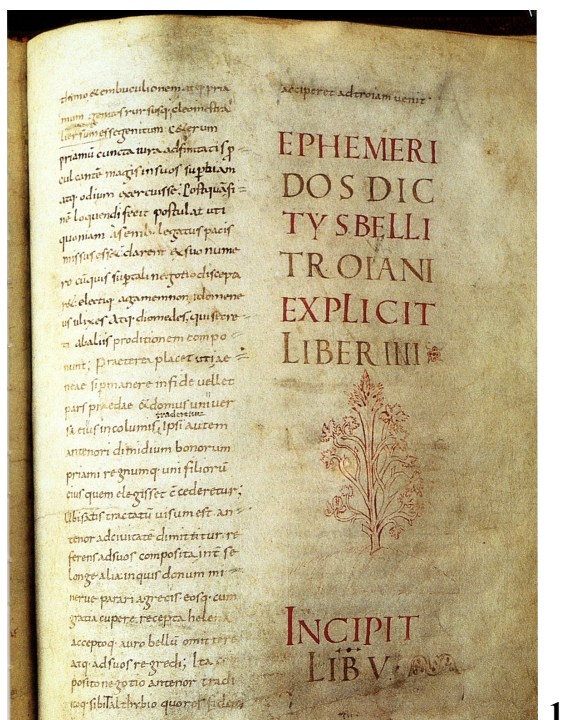 mum genitos rursusq; cleomestra
ursum esse genitum Ceterum
priamū cuncta iura adfinitatis p
cul cante magis insuos supbiam
atq; odium exercuisse; Postquā fi
nē loquendi fecit postulat uti
quoniam asenib; legatus pacis
missus esset darent exsuo nume
ro cū quis suptali negotio discepta
ret; electiq; agamemnon idomene
us ulixes atq; diomedes; qui secre
to abaliis proditionem compo
nunt; Praeterea placet uti ae
neae si pmanere infide uellet
pars praedae & domus uniuer
traderetur
sa eius incolumis; Ipsi autem
antenori dimidium bonorum
priami regnumq; uni filiorū
eius quem elegisset c̄cederetur;
Ubi satis tractatū uisum est an
tenor adciuitatē dimittitur re
ferens adsuos composita int̄ se
longe alia inquis donum mi
nerue parari agrecis eosq; cum
gratia cupere recepta helena
acceptoq; auro bellū omittere
atq; adsuos regredi; Ita com
posito negotio antenor tradi
toq; sibi Talthybio quo res fidem
acciperet adtroiam uenit
EPHEMERI
DOS DIC
TYS BELLI
TROIANI
EXPLICIT
LIBER IIII
INCIPIT
LIB V
1